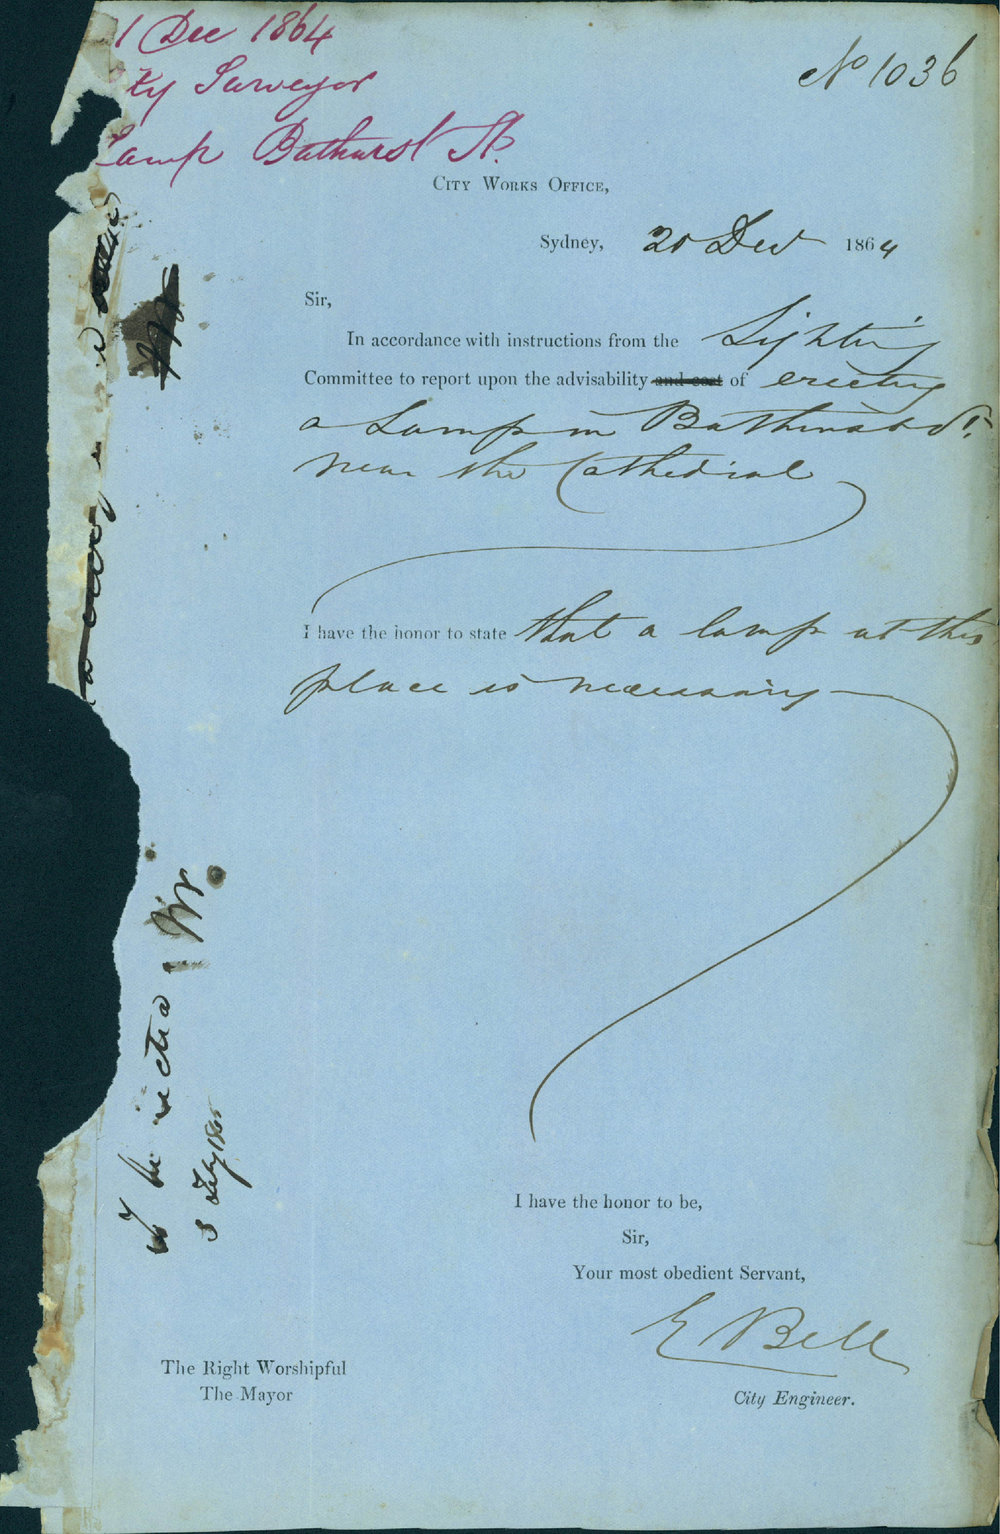 1 Dec 1864
No 1036
ty Surveyor
Lamp Bathurst St.
City Works Office,
Sydney, 20 Decr 1864
Sir,
In accordance with instructions from the Lighting
Committee to report upon the advisability and cost of erecting
a Lamp in Bathurst St.
near the Cathedral
I have the honor to state that a lamp at this
place is necessary
To be
3 Feby 1865
I have the honor to be,
Sir,
Your most obedient Servant,
E Bell
City Engineer.
The Right Worshipful
The Mayor